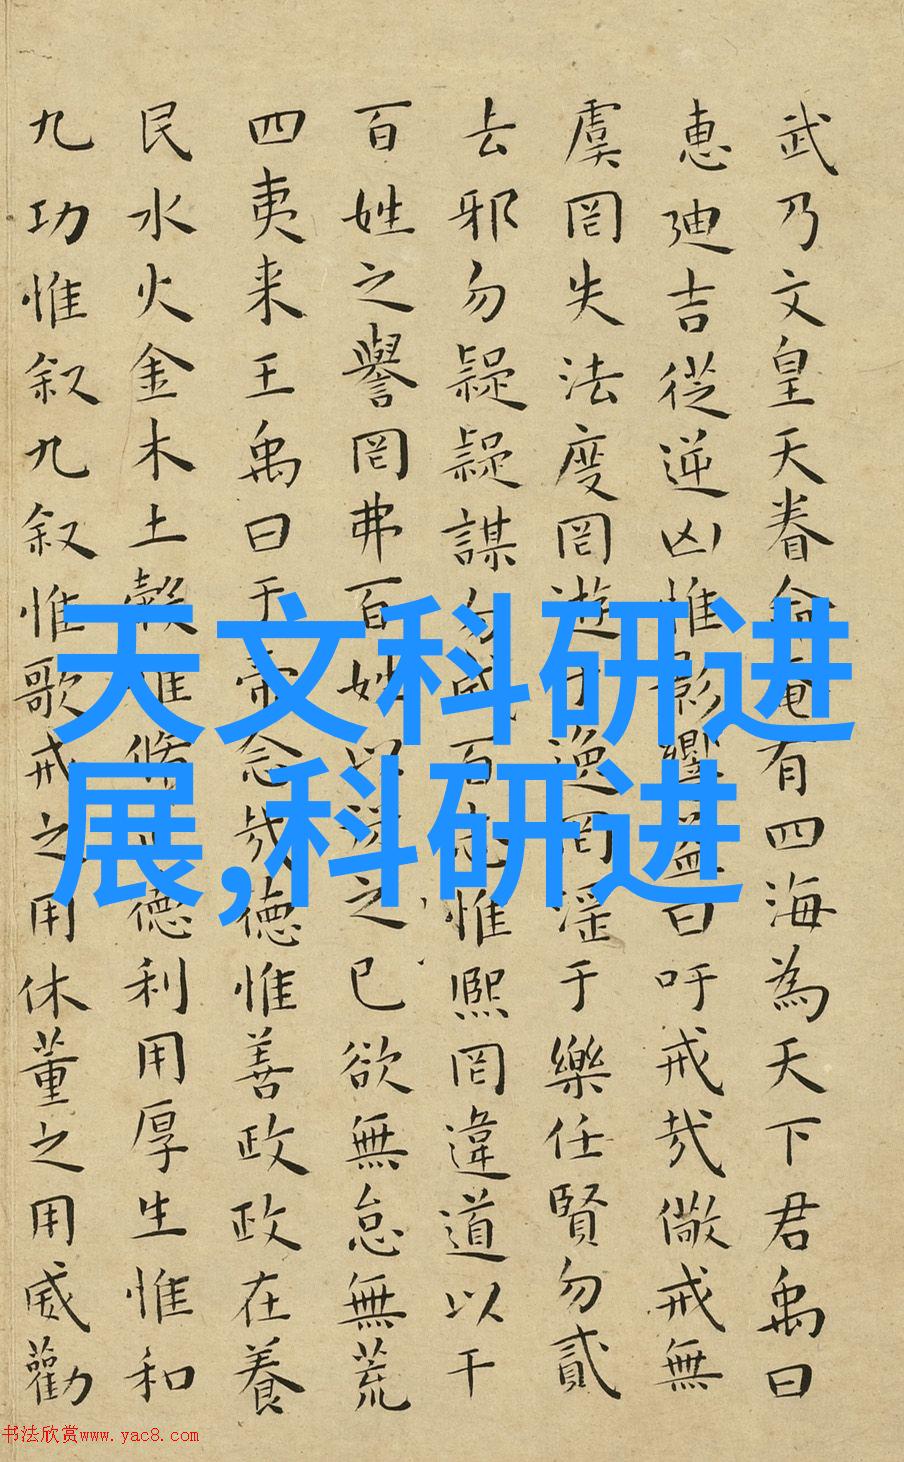 武乃文皇天眷命奄有四海為天下君禹曰
惠廸吉從逆凶惟影響益曰吁戒哉儆戒無
虞罔失法度罔遊于逸罔淫于樂任賢勿貳
去邪勿疑疑謀勿成百志惟熙罔違道以干
百姓之譽罔弗百姓以從之已欲無怠無荒
四夷来王禹曰于帝念哉德惟善政政在養
民水火金木土穀惟脩正德利用厚生惟和
九功惟叙九叙惟歌戒之用休董之用威勸
天文科研进
展,科研进
书法欣赏www.yac8.com